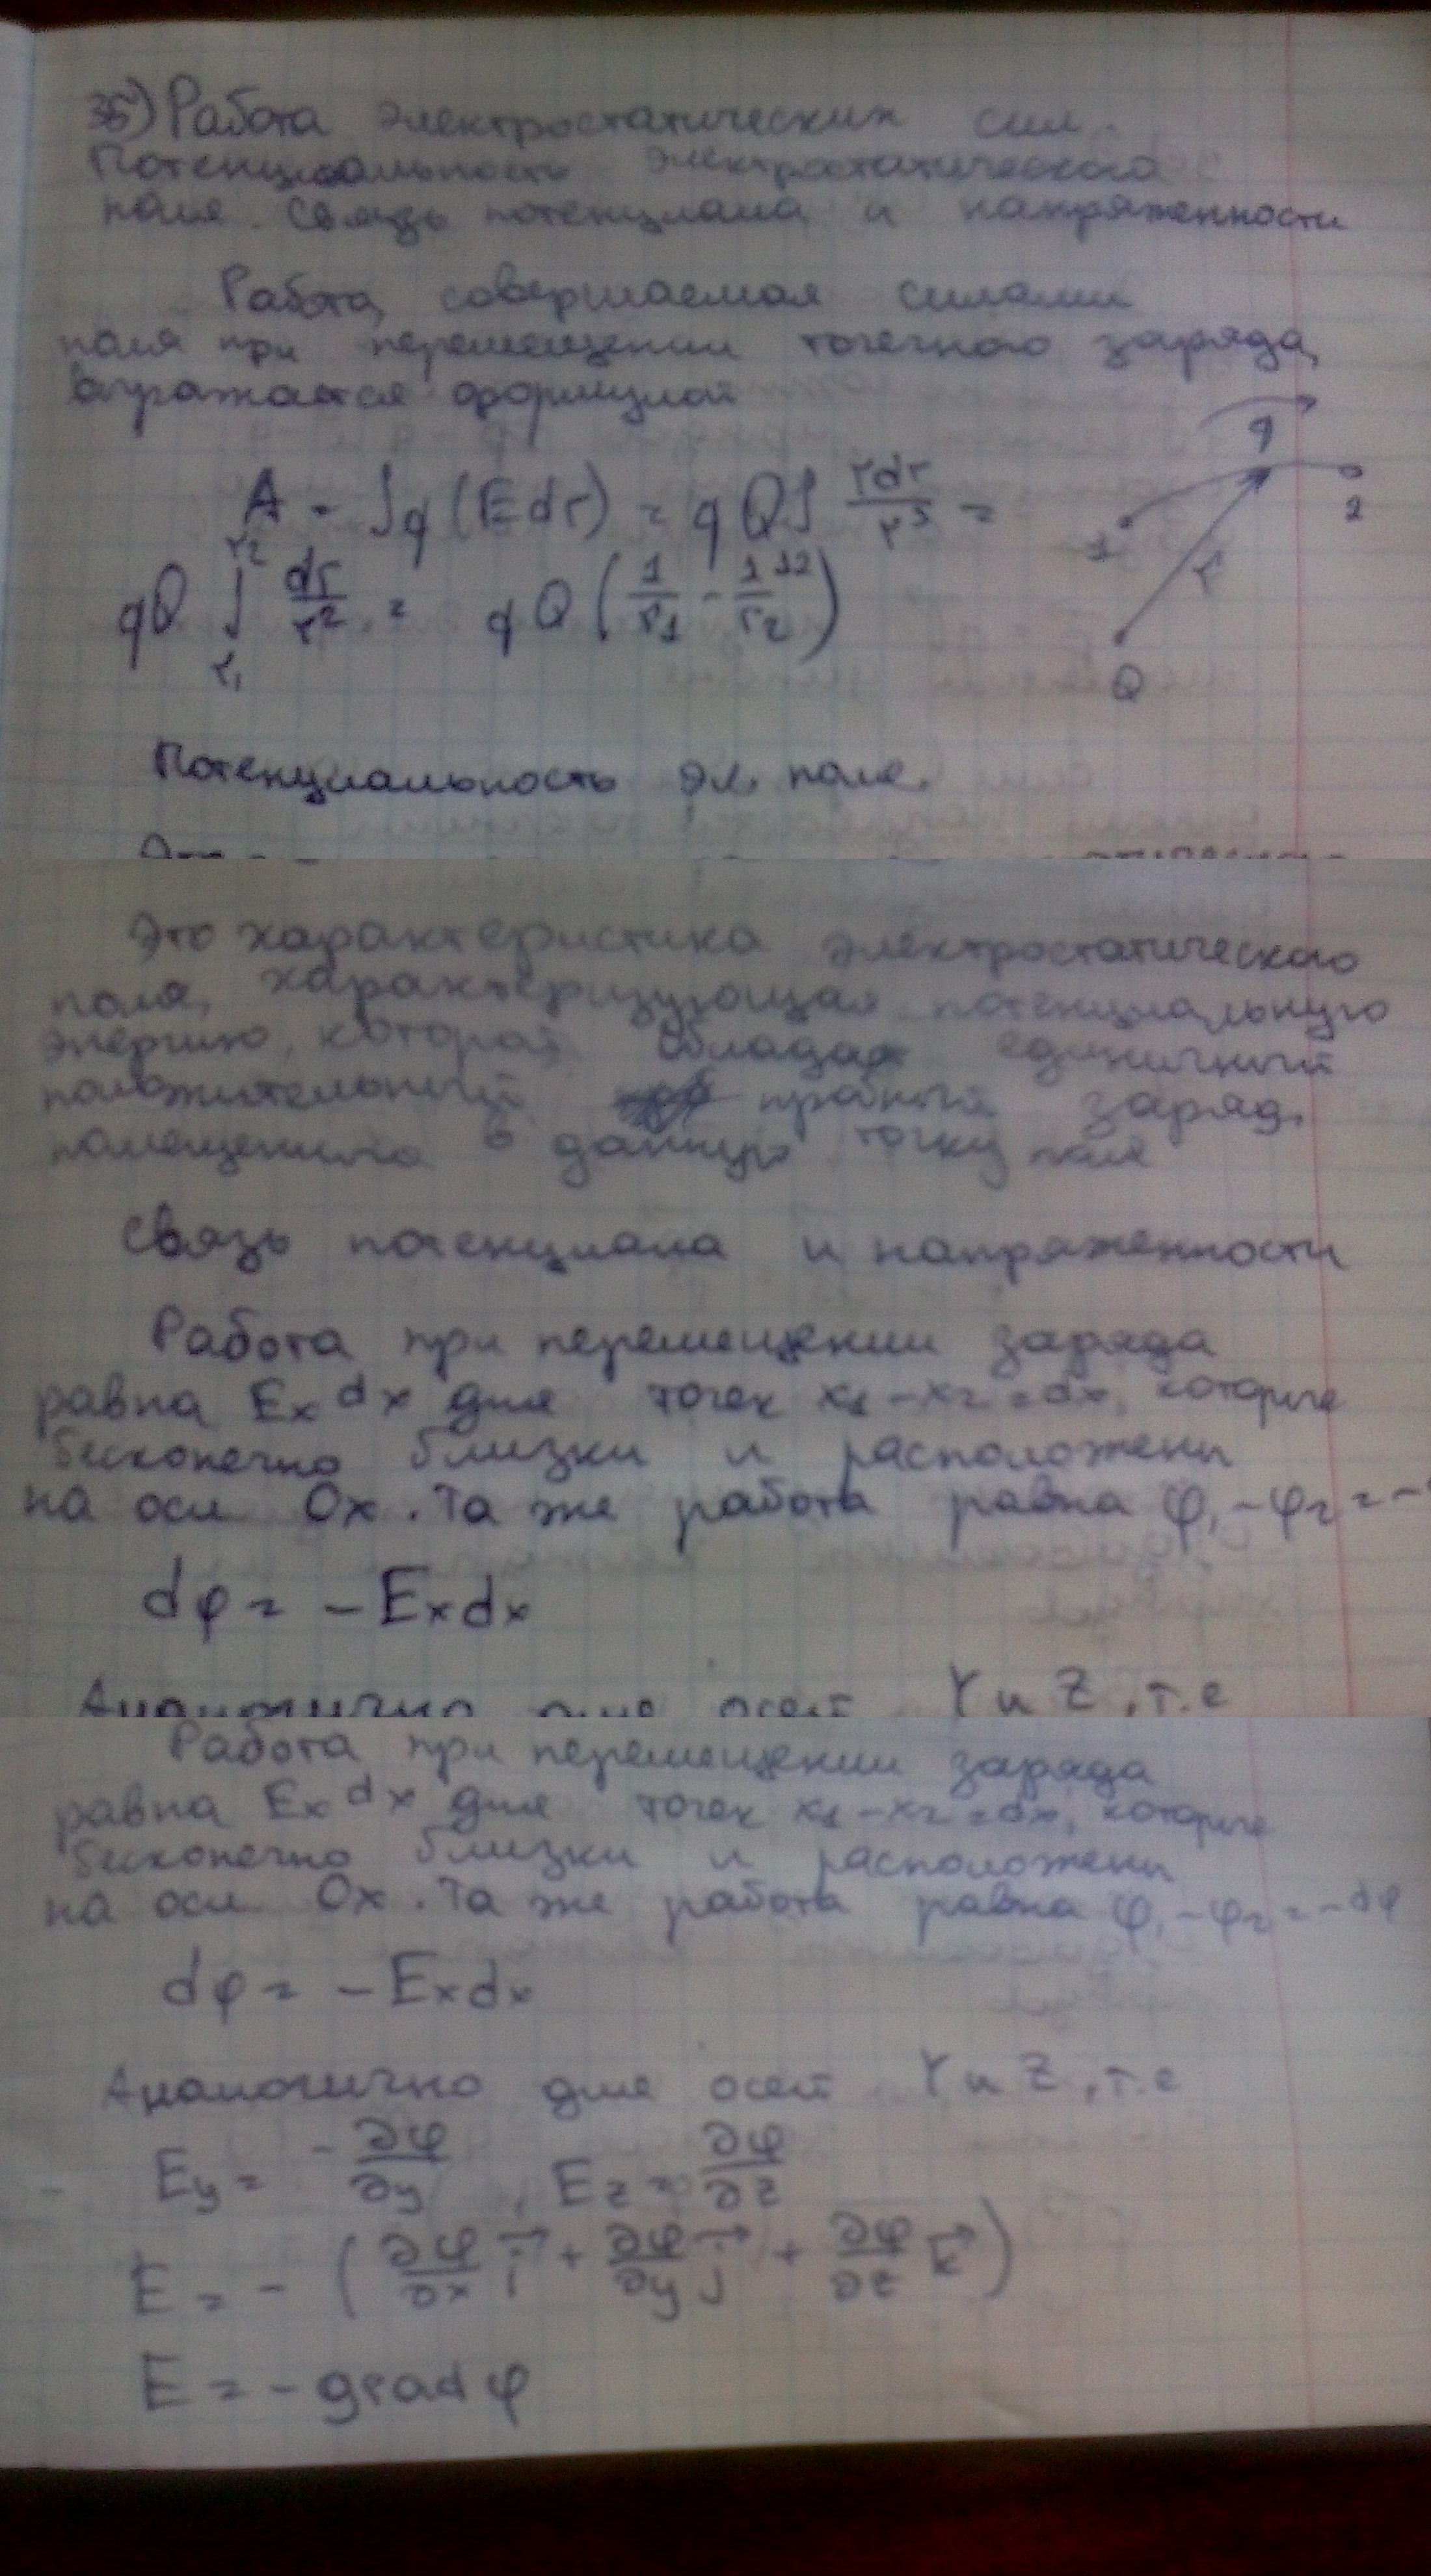 35) Работа электростатических сил.
Потенциальность электростатического
поля. Связь потенциала и напряженности
Работа, совершаемая силами
поля при перемещении точечного заряда,
выражается формулой
A = ∫q(Edr) = qQ∫ rdr/r³ =
qQ ∫ dr/r² = qQ(1/r₁ - 1/r₂)
r₂
r₁
12
q
1
2
r
Q
Потенциальность эл. поле.
Это характеристика электростатического
поля, характеризующая потенциальную
энергию, которой обладает единичный
положительный пробный заряд,
помещенного в данную точку поля
Связь потенциала и напряженности
Работа при перемещении заряда
равна Ex dx для точек x₁-x₂=dx, которые
бесконечно близки и расположены
на оси Ox. Та же работа равна φ₁-φ₂=-
dφ = -Exdx
Аналогично для осей Y и Z, т.е
Работа при перемещении заряда
равна Ex dx для точек x₁-x₂=dx, которые
бесконечно близки и расположены
на оси Ox. Та же работа равна φ₁-φ₂=-dφ
dφ = -Exdx
Аналогично для осей Y и Z, т.е
Ey = -∂φ/∂y, Ez = ∂φ/∂z
E = -(∂φ/∂x i⃗ + ∂φ/∂y j⃗ + ∂φ/∂z k⃗)
E = -grad φ